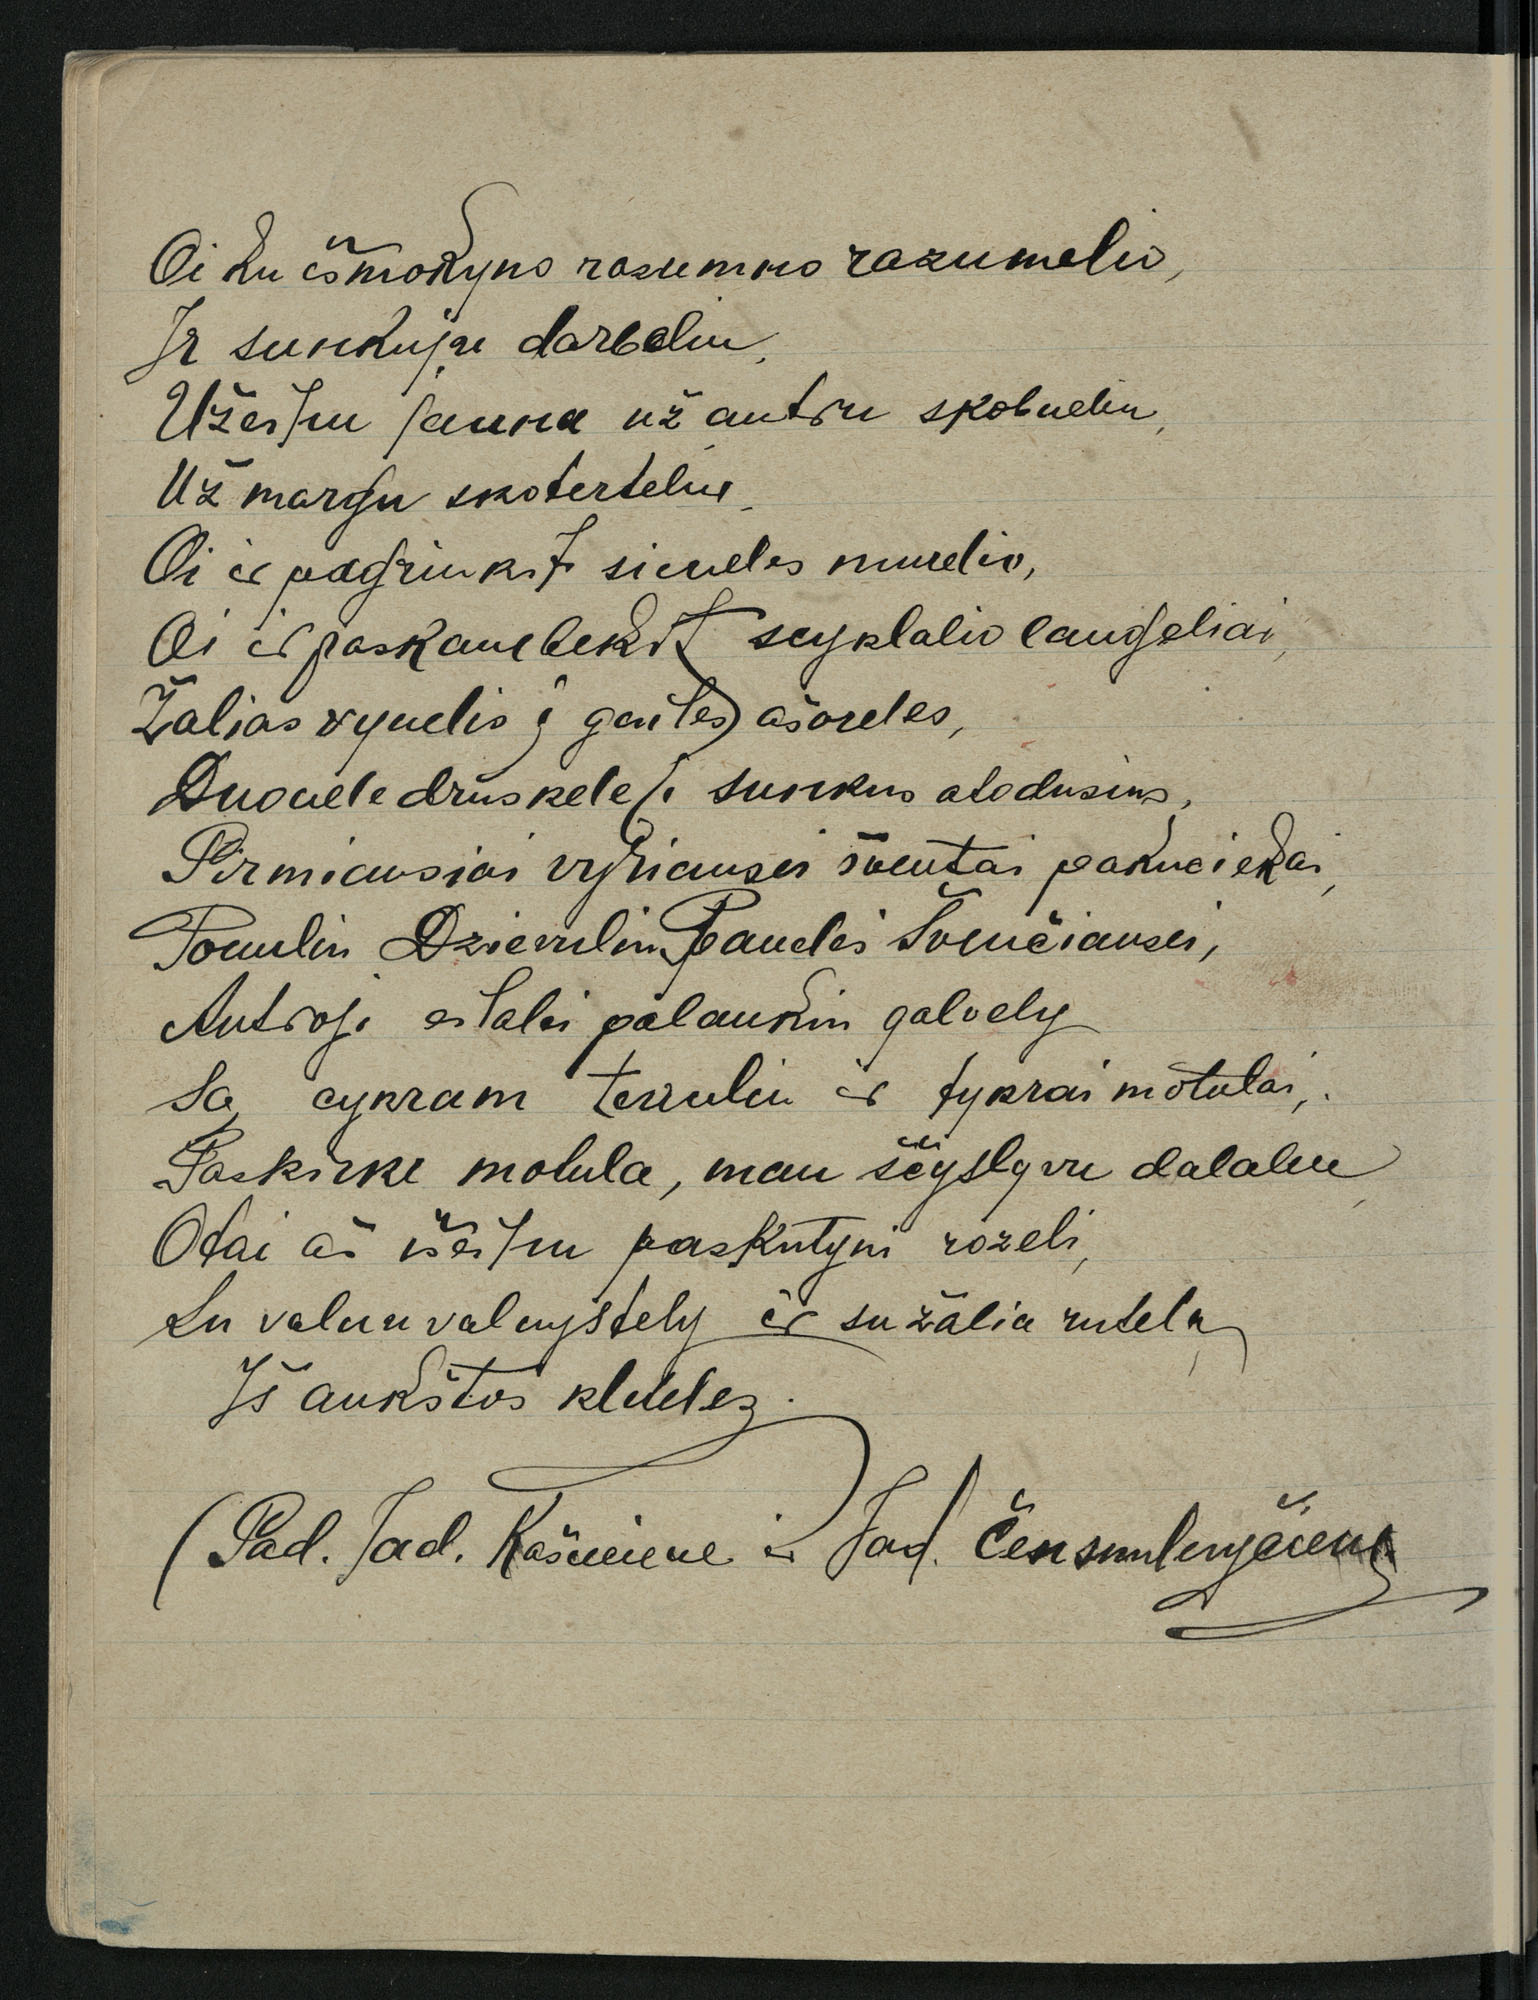 Oi ku išmokyno razumno razumelio,
Ir sunkuju darbeliu.
Užeisu jauna už antru skobneliu,
Už margu skoterteliu.
Oi ir pagrinkit sieneles murelio,
Oi ir paskambekit scyklalio langeliai,
Žalias vynelis į gailes ašareles,
Duonele druskele į sunkus atodusius,
Pirmiausiai vyriausei šventai pakuciekai,
Ponuliu Dzievuliu Panelei Švenčiausei,
Antroje eilalei palaukiu galvely
Sa cykram tevuliu ir tykrai motulai,
Paskirke motula, man ščyslyvu dalaliu
Otai aš išeisu paskutyni rozeli,
Su valnu valnystely ir su žalia rutela
Iš aukštos kleteles.
(Pad. Jad. Kašiniene ir Jad. Čensnulevyčiene